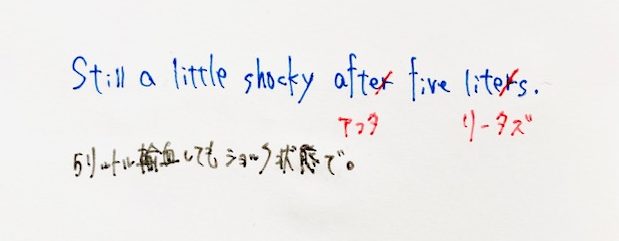 Still a little shocky after five liters.
アフタ リータズ
5リットル輸血してもショック状態で。